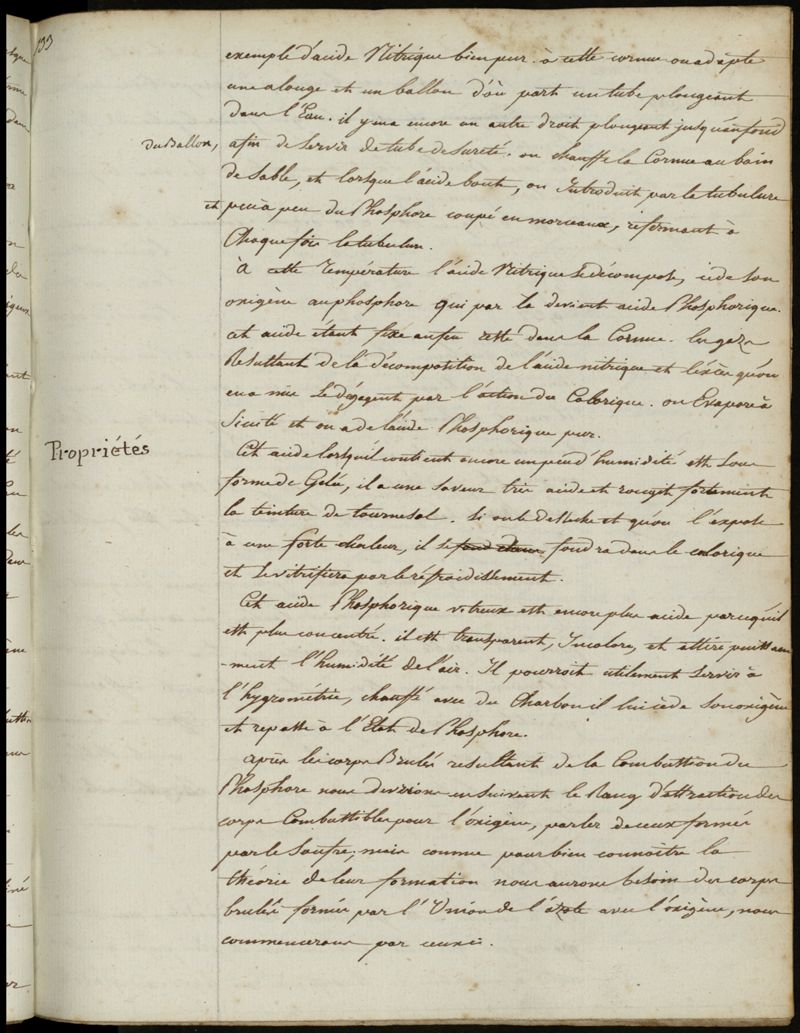 133
exemple d'acide Nitrique bien pur. à cette cornue on adapte
une alonge et un ballon d'où part un tube plongeant
dans l'Eau. il y en a encore un autre droit plongeant jusqu'au fond
du Ballon, afin de servir de tube de sureté. on chauffe la Cornue au bain
de Sable, et lorsque l'acide bout, on Introduit par la tubulure
et peu à peu du Phosphore coupé en morceaux, refermant à
Chaque fois la tubulure.
à cette Température l'acide Nitrique se décompose, cède son
oxigène au phosphore qui par là devient acide Phosphorique.
cet acide étant fixe au feu reste dans la Cornue. les gazs
Resultant de la décomposition de l'acide nitrique et l'éxcès qu'on
en a mis se dégagent par l'action du Calorique. on Evapore à
Siccité et on a de l'acide Phosphorique pur.
Propriétés
Cet acide lorsqu'il contient encore un peu d'humidité est sous
forme de Gelée, il a une saveur très acide et rougit fortement
la teinture de tournesol. si on le desséche et qu'on l'expose
à une forte chaleur, il se fondra dans le calorique
et se vitrifiera par le réfroidissement.
Cet acide Phosphorique vitreux est encore plus acide parcequ'il
est plus concentré. il est transparent, Incolore, et attire puissam
-ment l'humidité de l'air. Il pourroit utilement servir à
l'hygrométrie, chauffé avec du Charbon il lui cède son oxigène
et repasse à l'Etat de Phosphore.
après les corps Brulés resultant de la Combustion du
Phosphore nous devrions en suivant le Rang d'attraction des
corps Combustibles pour l'oxigène, parler de ceux formés
par le Soufre; mais comme pour bien connoître la
théorie de leur formation nous aurons besoin des corps
brulés formés par l'Union de l'azote avec l'oxigène, nous
commencerons par ceuxci.